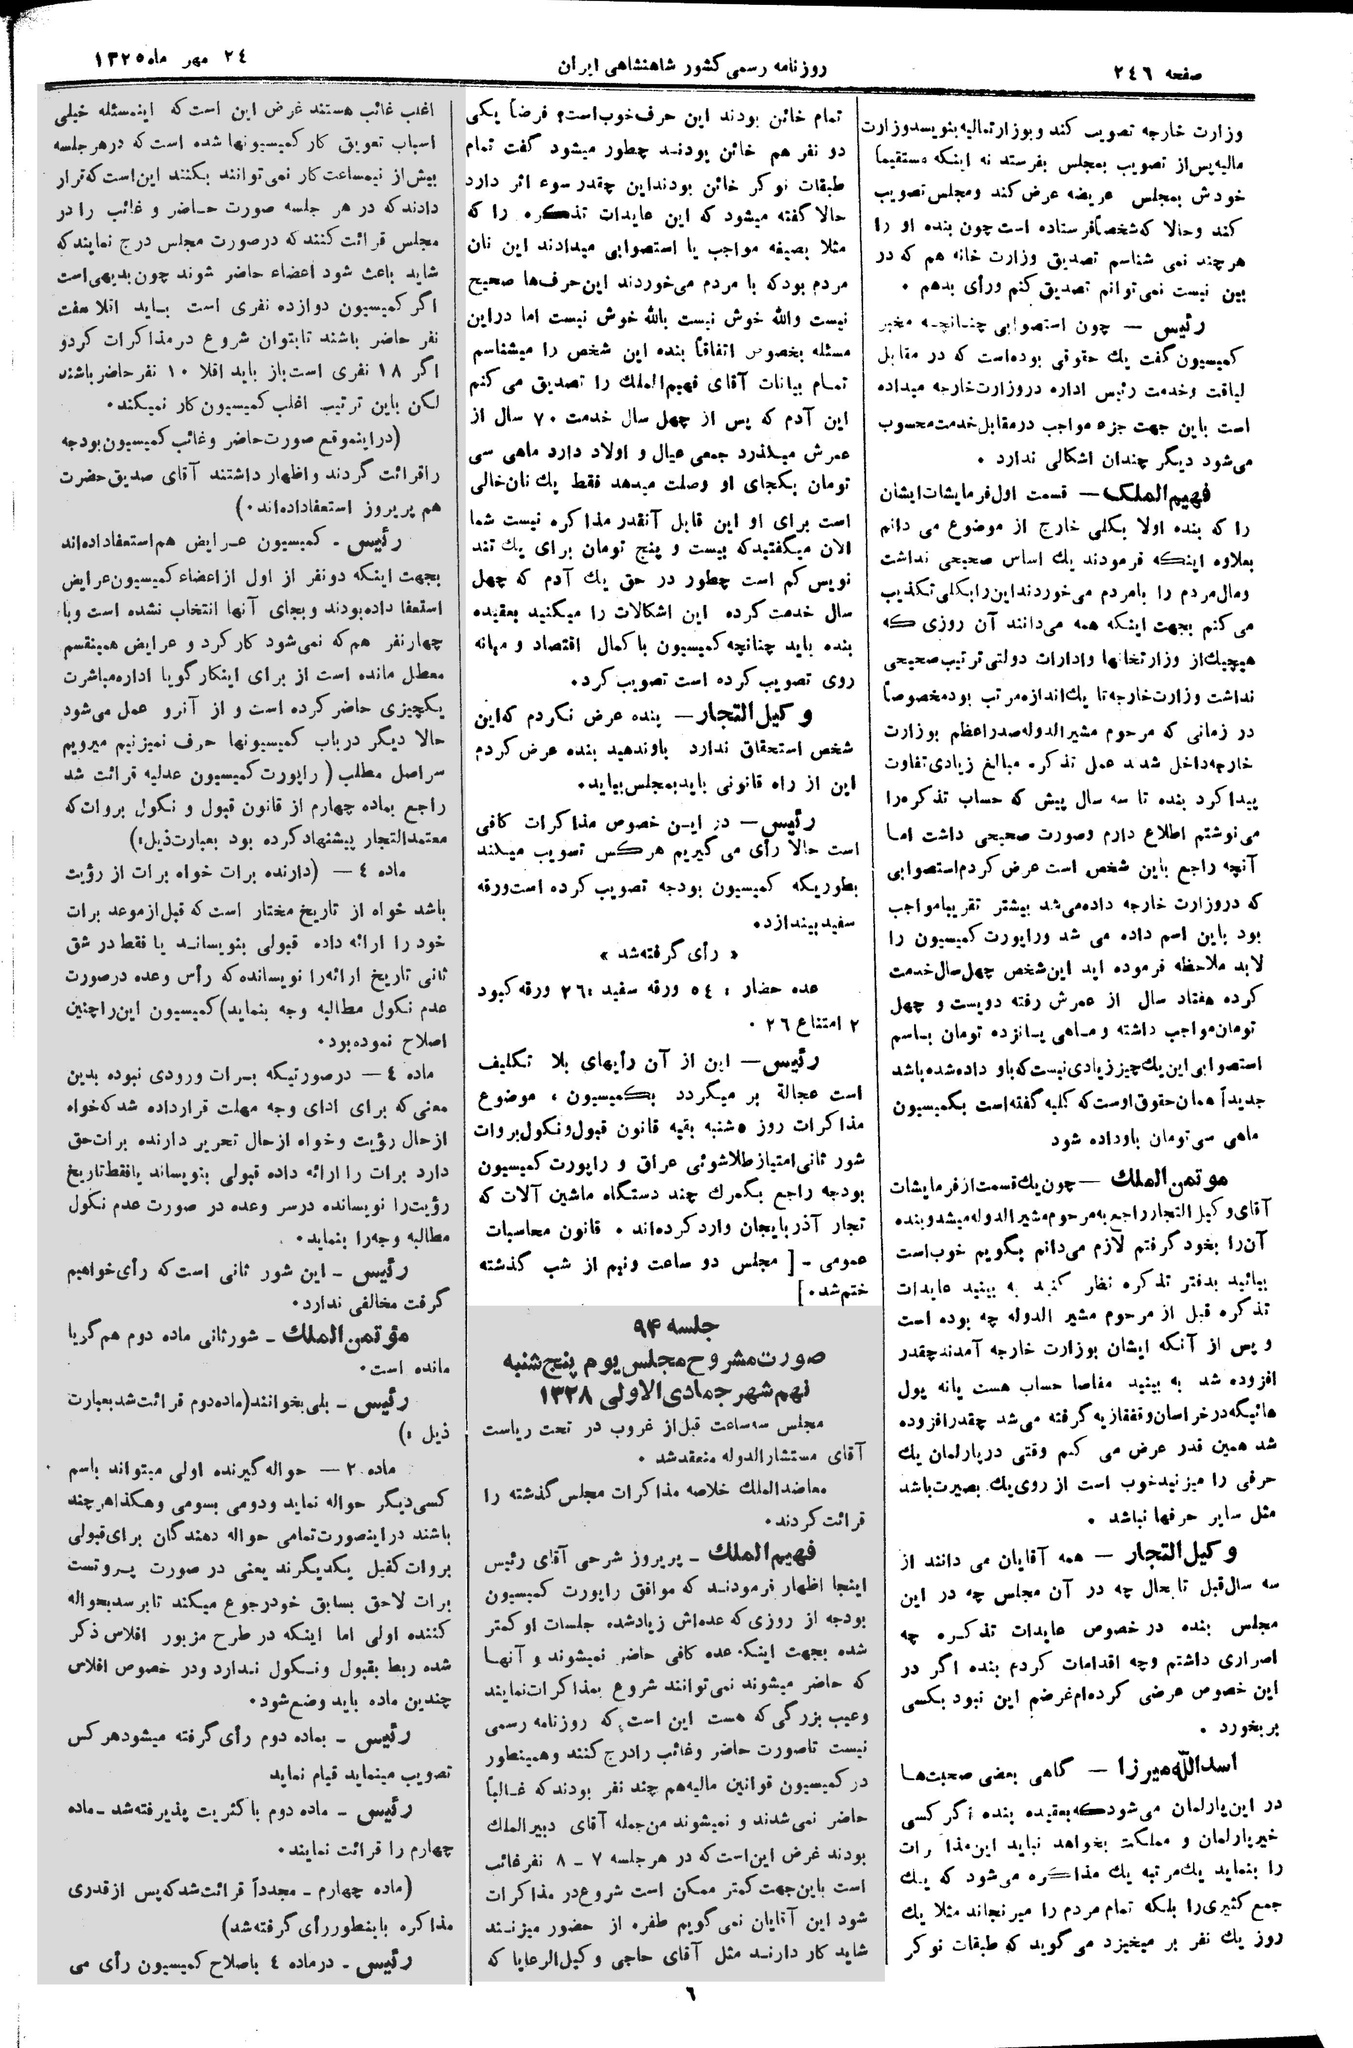 صفحه ۲٤٦
روزنامه رسمی کشور شاهنشاهی ایران
۲٤ مهر ماه ۱۳۲۵
وزارت خارجه تصویب کند و بوزارتمالیه بنویسد وزارت
مالیه پس از تصویب بمجلس بفرستد نه اینکه مستقیماً
خودش بمجلس عریضه عرض کند ومجلس تصویب
کند وحالا که شخصاً فرستاده است چون بنده او را
هرچند نمی شناسم تصدیق وزارت خانه هم که در
بین نیست نمی‌توانم تصدیق کنم ورأی بدهم .
رئیس — چون استصوابی چنانچه مخبر
کمیسیون گفت یك حقوقی بوده‌است که در مقابل
لیاقت وخدمت رئیس اداره دروزارت خارجه میداده
است باین جهت جزء مواجب در مقابل خدمت محسوب
می‌شود دیگر چندان اشکالی ندارد .
فهیم الملک — قسمت اول فرمایشات ایشان
را که بنده اولا بکلی خارج از موضوع می دانم
بعلاوه اینکه فرمودند یك اساس صحیحی نداشت
ومال مردم را بامردم می‌خوردند این را بکلی تکذیب
می‌کنم بجهت اینکه همه می‌دانند آن روزی که
هیچیك از وزارتخانها وادارات دولتی ترتیب صحیحی
نداشت وزارت خارجه تا یك اندازه مرتب بود مخصوصاً
در زمانی که مرحوم مشیرالدوله صدراعظم بوزارت
خارجه داخل شدند عمل تذکره مبالغ زیادی تفاوت
پیدا کرد بنده تا سه سال پیش که حساب تذکره را
می‌نوشتم اطلاع دارم وصورت صحیحی داشت اما
آنچه راجع باین شخص است عرض کردم استصوابی
که دروزارت خارجه داده می‌شد بیشتر تقریبا مواجب
بود باین اسم داده می شد وراپورت کمیسیون را
لابد ملاحظه فرموده اید این شخص چهل سال خدمت
کرده هفتاد سال از عمرش رفته دویست و چهل
تومان مواجب داشته و ماهی پانزده تومان باسم
استصوابی این یك چیز زیادی نیست که باو داده شده باشد
جدیداً همان حقوق اوست که کلیه گفته است بکمیسیون
ماهی سی تومان باو داده شود
موتمن الملك — چون یك قسمت از فرمایشات
آقای وکیل التجار راجع به مرحوم مشیرالدوله میشد وبنده
آن را بخود گرفتم لازم می‌دانم بگویم خوب است
بیائید بدفتر تذکره نظر کنید به بینید عایدات
تذکره قبل از مرحوم مشیر الدوله چه بوده است
و پس از آنکه ایشان بوزارت خارجه آمدند چقدر
افزوده شد به بینید مفاصا حساب هست یانه پول
هائیکه در خراسان وقفقازیه گرفته می‌شد چقدر افزوده
شد همین قدر عرض می کنم وقتی در پارلمان یك
حرفی را میزنید خوب است از روی یك بصیرت باشد
مثل سایر حرفها نباشد .
وکیل التجار — همه آقایان می دانند از
سه سال قبل تا بحال چه در آن مجلس چه در این
مجلس بنده در خصوص عایدات تذکره چه
اصراری داشتم وچه اقدامات کردم بنده اگر در
این خصوص عرضی کرده‌ام غرضم این نبود بکسی
بر بخورد .
اسدالله میرزا — گاهی بعضی صحبت‌ها
در این پارلمان می‌شود که بعقیده بنده اگر کسی
خیر پارلمان و مملکت بخواهد نباید این مذاکرات
را بنماید یك مرتبه یك مذاکره می‌شود که یك
جمع کثیری را بلکه تمام مردم را میرنجاند مثلا یك
روز یك نفر بر میخیزد می‌گوید که طبقات نوکر
تمام خائن بودند این حرف خوب است؟ فرضاً یکی
دو نفر هم خائن بودند چطور میشود گفت تمام
طبقات نوکر خائن بودند این چقدر سوء اثر دارد
حالا گفته میشود که این عایدات تذکره را که
مثلا بصیغه مواجب یا استصوابی میدادند این نان
مردم بود که با مردم می‌خوردند این حرف‌ها صحیح
نیست والله خوش نیست بالله خوش نیست اما در این
مسئله بخصوص اتفاقاً بنده این شخص را میشناسم
تمام بیانات آقای فهیم الملك را تصدیق می کنم
این آدم که پس از چهل سال خدمت ۷۰ سال از
عمرش میگذرد جمعی عیال و اولاد دارد ماهی سی
تومان بکجای او وصلت میدهد فقط یك نان خالی
است برای او این قابل آنقدر مذاکره نیست شما
الان میگفتید که بیست و پنج تومان برای یك تند
نویس کم است چطور در حق یك آدم که چهل
سال خدمت کرده این اشکالات را میکنید بعقیده
بنده باید چنانچه کمیسیون با کمال اقتصاد و میانه
روی تصویب کرده است تصویب کرد.
وکیل التجار — بنده عرض نکردم که این
شخص استحقاق ندارد باوندهید بنده عرض کردم
این از راه قانونی باید بمجلس بیاید.
رئیس — در این خصوص مذاکرات کافی
است حالا رأی می گیریم هرکس تصویب میکند
بطوریکه کمیسیون بودجه تصویب کرده است ورقه
سفید بیندازد.
« رأی گرفته شد »
عده حضار : ٥٤ ورقه سفید : ۲٦ ورقه کبود
۲ امتناع ۲٦ .
رئیس — این از آن رأیهای بلا تکلیف
است عجالة بر میگردد بکمیسیون ، موضوع
مذاکرات روز ٥شنبه بقیه قانون قبول و نکول بروات
شور ثانی امتیاز طلاشوئی عراق و راپورت کمیسیون
بودجه راجع بگمرك چند دستگاه ماشین آلات که
تجار آذربایجان وارد کرده‌اند . قانون محاسبات
عمومی - [ مجلس دو ساعت ونیم از شب گذشته
ختم شد . ]
جلسه ۹۴
صورت مشروح مجلس یوم پنج شنبه
نهم شهر جمادی الاولی ۱۳۲۸
مجلس سه ساعت قبل از غروب در تحت ریاست
آقای مستشار الدوله منعقد شد .
معاضدالملك خلاصه مذاکرات مجلس گذشته را
قرائت کردند.
فهیم الملك - پریروز شرحی آقای رئیس
اینجا اظهار فرمودند که موافق راپورت کمیسیون
بودجه از روزی که عده‌اش زیاد شده جلسات او کمتر
شده بجهت اینکه عده کافی حاضر نمیشوند و آنها
که حاضر میشوند نمی‌توانند شروع بمذاکرات نمایند
وعیب بزرگی که هست این است که روزنامه رسمی
نیست تاصورت حاضر وغائب را درج کنند وهمینطور
در کمیسیون قوانین مالیه هم چند نفر بودند که غالباً
حاضر نمی‌شدند و نمیشوند من جمله آقای دبیر الملك
بودند غرض این است که در هر جلسه ۷ - ۸ نفر غائب
است باین جهت کمتر ممکن است شروع در مذاکرات
شود این آقایان نمی گویم طفره از حضور میزنند
شاید کار دارند مثل آقای حاجی وکیل الرعایا که
اغلب غائب هستند غرض این است که اینمسئله خیلی
اسباب تعویق کار کمیسیونها شده است که در هر جلسه
بیش از نیمساعت کار نمی‌توانند بکنند این است که قرار
دادند که در هر جلسه صورت حاضر و غائب را در
مجلس قرائت کنند که در صورت مجلس درج نمایند که
شاید باعث شود اعضاء حاضر شوند چون بدیهی است
اگر کمیسیون دوازده نفری است باید اقلا هفت
نفر حاضر باشند تابتوان شروع در مذاکرات کرد و
اگر ۱۸ نفری است باز باید اقلا ۱۰ نفر حاضر باشند
لکن باین ترتیب اغلب کمیسیون کار نمیکند.
(در اینموقع صورت حاضر وغائب کمیسیون بودجه
را قرائت کردند واظهار داشتند آقای صدیق حضرت
هم پریروز استعفا داده‌اند.)
رئیس - کمیسیون عرایض هم استعفا داده‌اند
بجهت اینکه دونفر از اول از اعضاء کمیسیون عرایض
استعفا داده بودند و بجای آنها انتخاب نشده است وبا
چهار نفر هم که نمی‌شود کار کرد و عرایض همینقسم
معطل مانده است از برای اینکار گویا اداره مباشرت
یکچیزی حاضر کرده است و از آنرو عمل می‌شود
حالا دیگر در باب کمیسیونها حرف نمیزنیم میرویم
سر اصل مطلب ( راپورت کمیسیون عدلیه قرائت شد
راجع بماده چهارم از قانون قبول و نکول بروات که
معتمد التجار پیشنهاد کرده بود بعبارت ذیل:)
ماده ٤ — (دارنده برات خواه برات از رؤیت
باشد خواه از تاریخ مختار است که قبل از موعد برات
خود را ارائه داده قبولی بنویساند یا فقط در شق
ثانی تاریخ ارائه‌را نویسانده که رأس وعده درصورت
عدم نکول مطالبه وجه بنماید) کمیسیون این را چنین
اصلاح نموده بود.
ماده ٤ — در صورتیکه برات ورودی نبوده بدین
معنی که برای ادای وجه مهلت قرار داده شد که خواه
از حال رؤیت وخواه از حال تحریر دارنده برات حق
دارد برات را ارائه داده قبولی بنویساند یا فقط تاریخ
رؤیت را نویسانده درسر وعده در صورت عدم نکول
مطالبه وجه را بنماید.
رئیس - این شور ثانی است که رأی خواهیم
گرفت مخالفی ندارد.
مؤتمن الملك - شورثانی ماده دوم هم گویا
مانده است.
رئیس - بلی بخوانند (ماده دوم قرائت شد بعبارت
ذیل :)
ماده ۲ — حواله گیرنده اولی میتواند باسم
کسی دیگر حواله نماید ودومی بسومی وهکذا هر چند
باشند در اینصورت تمامی حواله دهندگان برای قبولی
بروات کفیل یکدیگرند یعنی در صورت پروتست
برات لاحق بسابق خود رجوع میکند تا برسد بحواله
کننده اولی اما اینکه در طرح مزبور افلاس ذکر
شده ربط بقبول ونکول ندارد ودر خصوص افلاس
چندین ماده باید وضع شود.
رئیس - بماده دوم رأی گرفته میشود هر کس
تصویب مینماید قیام نماید
رئیس - ماده دوم با کثریت پذیرفته شد - ماده
چهارم را قرائت نمایند.
(ماده چهارم - مجدداً قرائت شد که پس از قدری
مذاکره باینطور رأی گرفته شد)
رئیس - در ماده ٤ باصلاح کمیسیون رأی می
٦